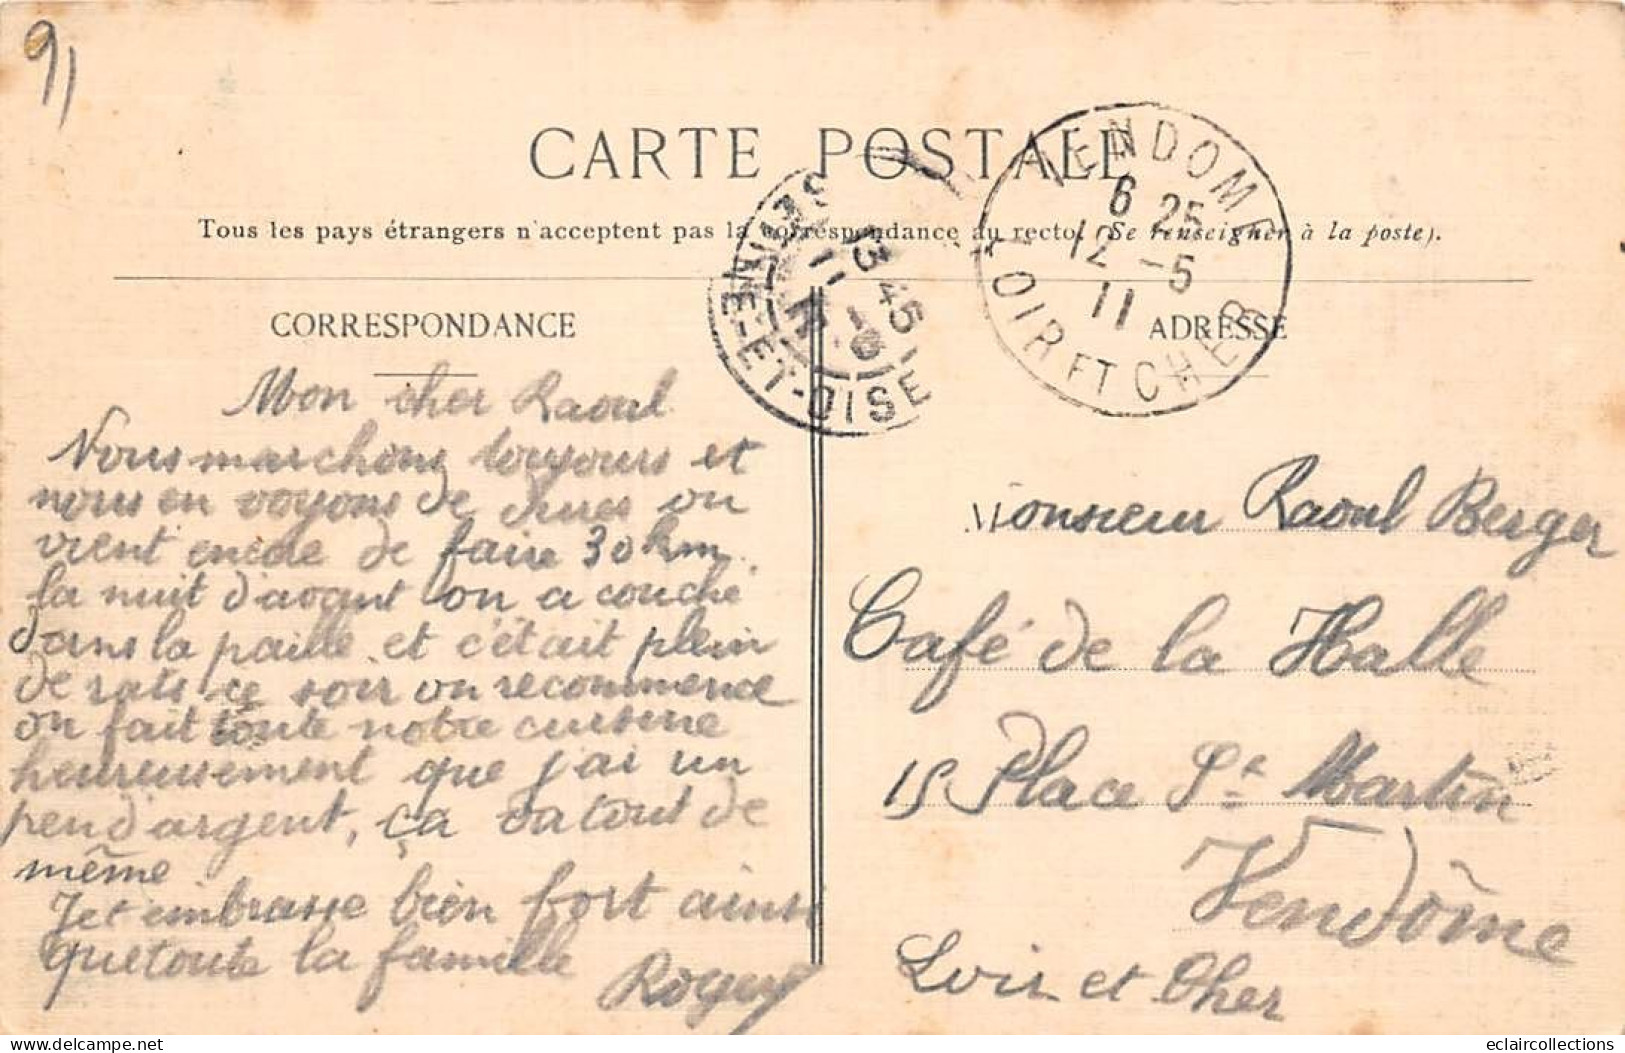 91
CARTE POSTALE
Tous les pays étrangers n'acceptent pas la correspondance au recto. (Se renseigner à la poste).
VENDOME
6 25
12 -5
11
LOIR ET CHER
13 45
11 -5
11
SEINE-ET-OISE
CORRESPONDANCE
ADRESSE
Mon cher Raoul
Nous marchons toujours et
nous en voyons de dures on
vient encore de faire 30 km.
la nuit d'avant on a couché
dans la paille et c'était plein
de rats ce soir on recommence
on fait toute notre cuisine
heureusement que j'ai un
peu d'argent, ça va tout de
même
Je t'embrasse bien fort ainsi
que toute la famille
Roger
Monsieur Raoul Berger
Café de la Halle
15 Place St Martin
Vendôme
Loir et Cher
eclaircollections